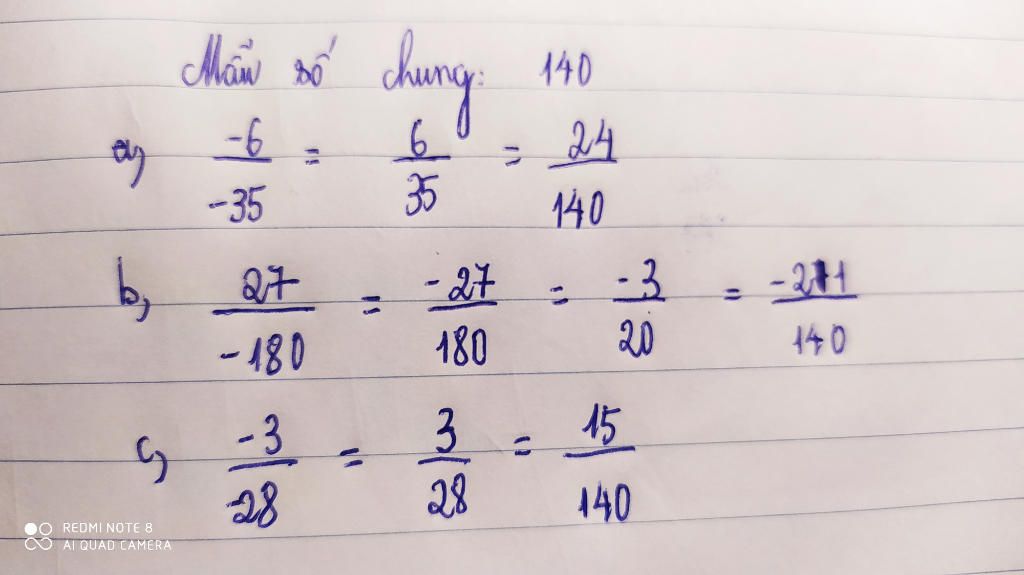 Mẫu số chung: 140
a, -6/-35 = 6/35 = 24/140
b, 27/-180 = -27/180 = -3/20 = -21/140
c, -3/-28 = 3/28 = 15/140
REDMI NOTE 8
AI QUAD CAMERA